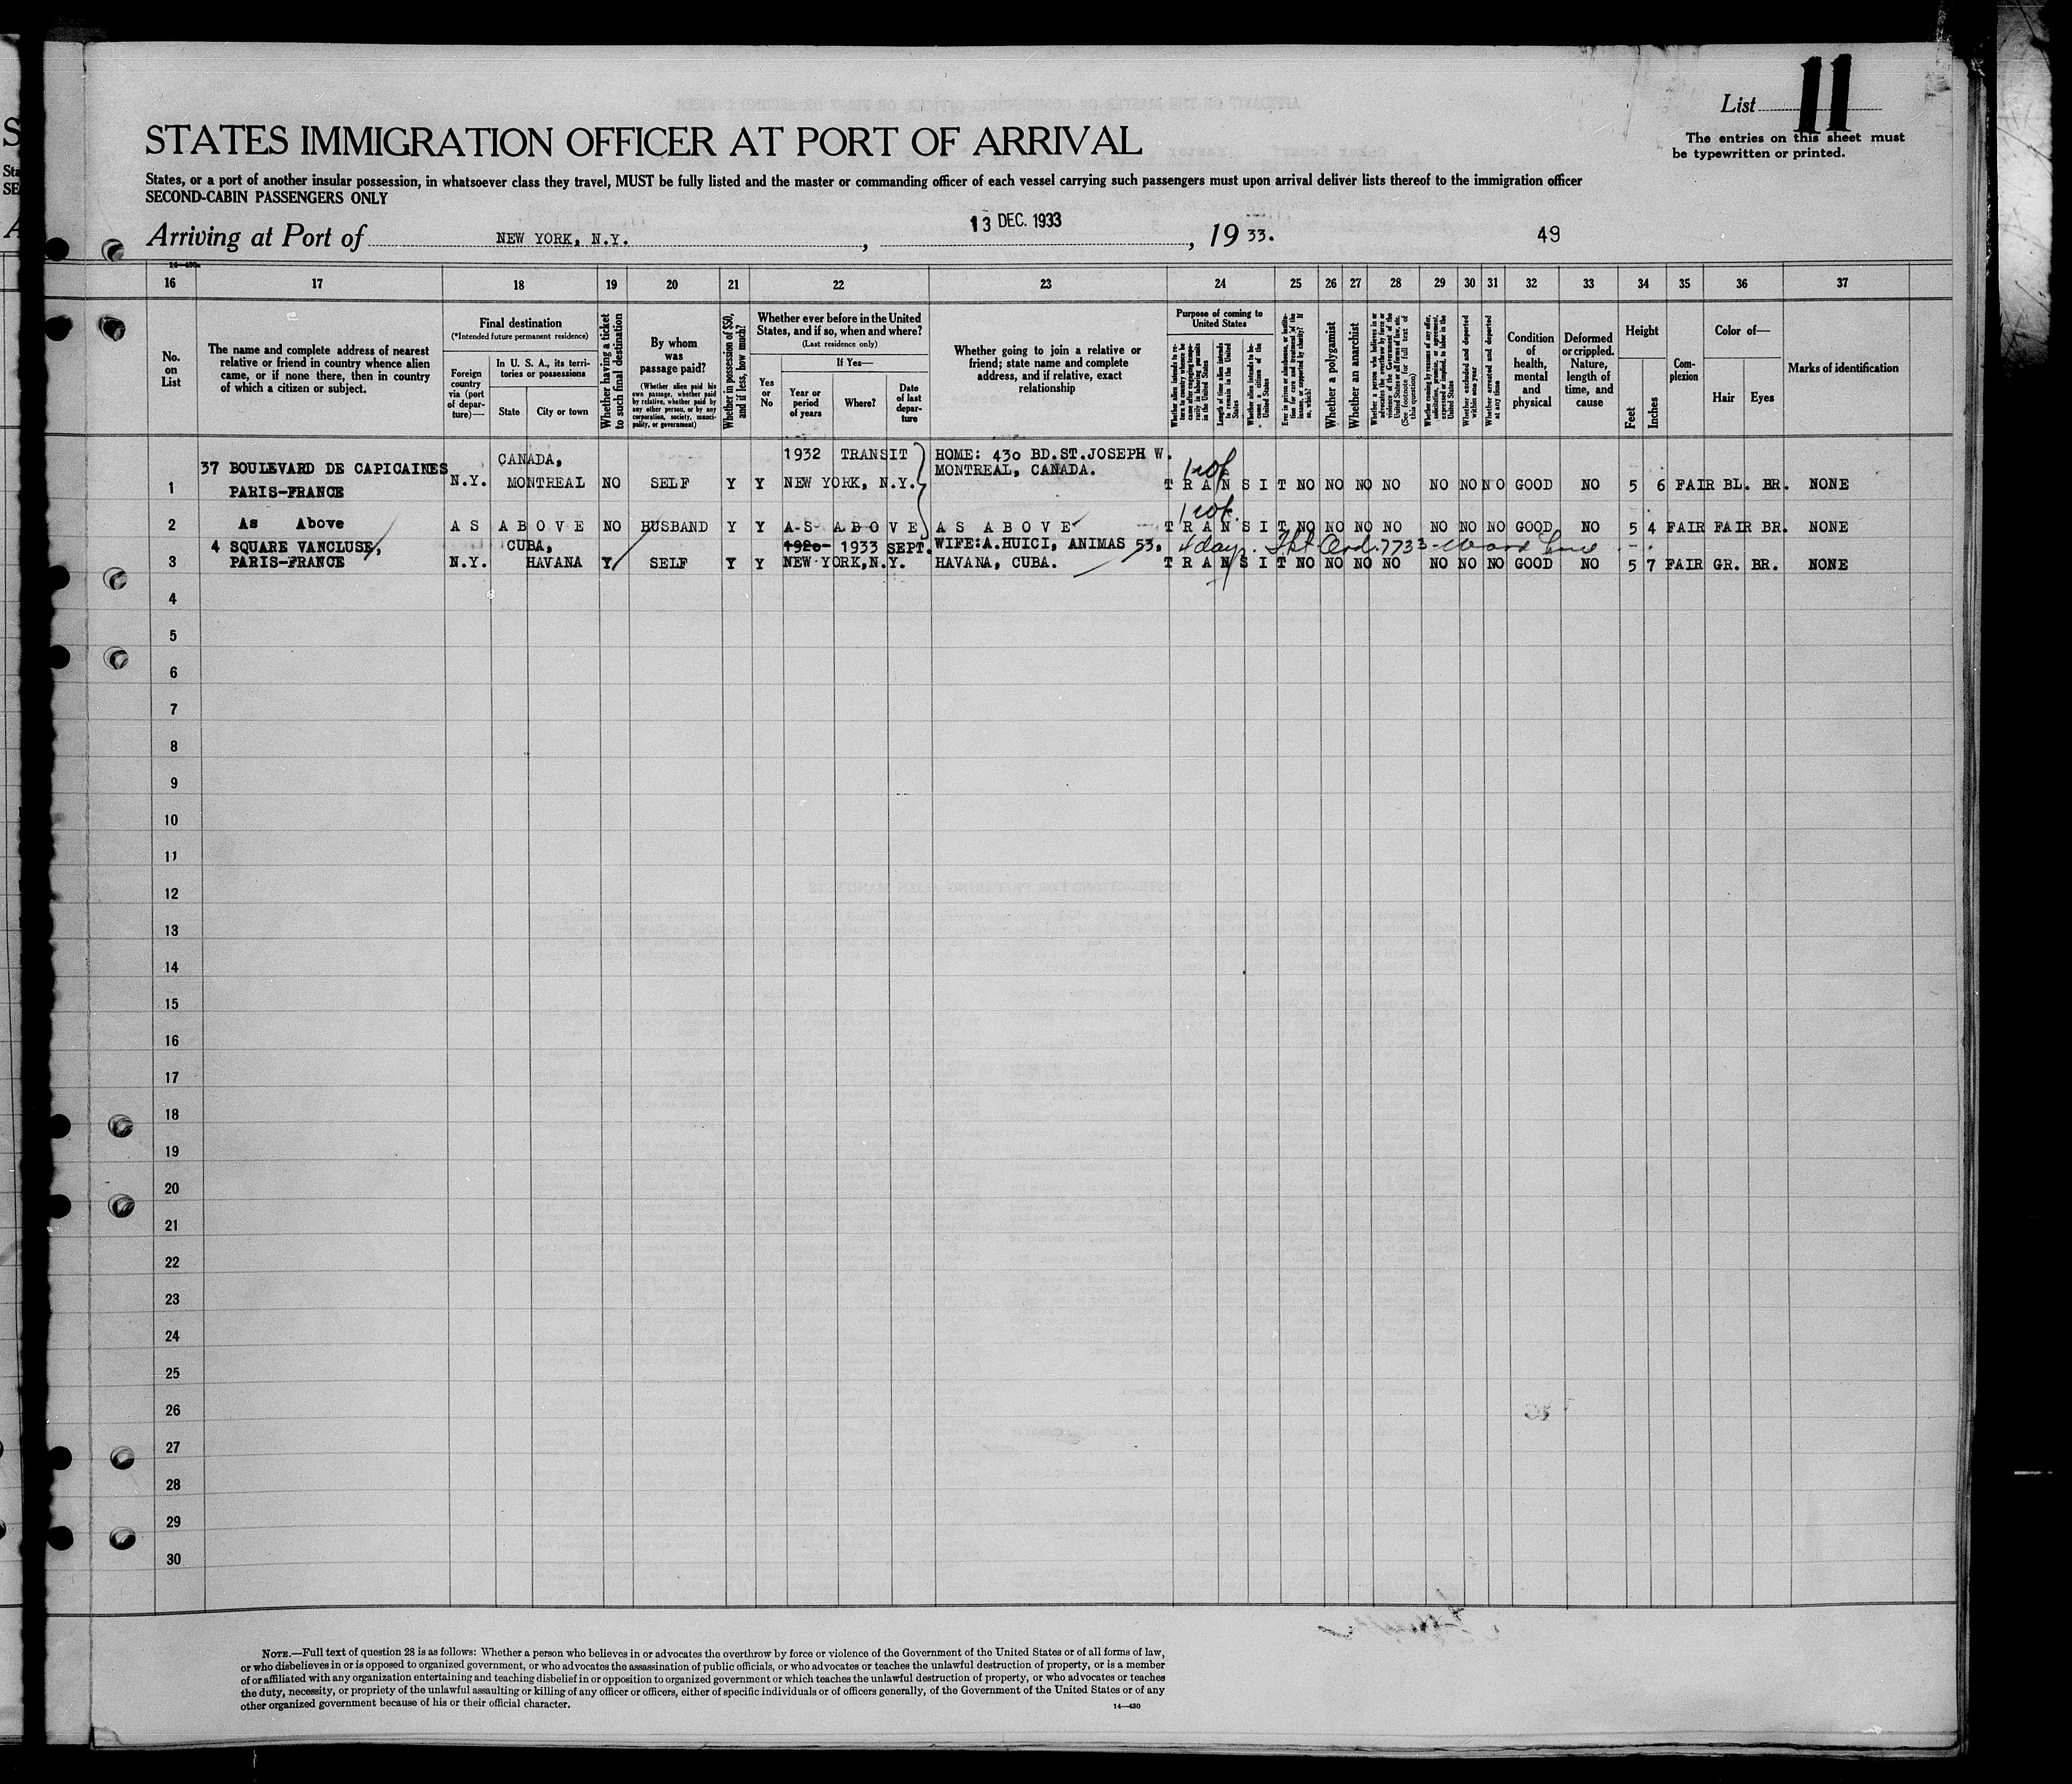 List 11
The entries on this sheet must
be typewritten or printed.
STATES IMMIGRATION OFFICER AT PORT OF ARRIVAL
States, or a port of another insular possession, in whatsoever class they travel, MUST be fully listed and the master or commanding officer of each vessel carrying such passengers must upon arrival deliver lists thereof to the immigration officer
SECOND-CABIN PASSENGERS ONLY
Arriving at Port of NEW YORK, N.Y. , 13 DEC. 1933 , 19 33. 49
16 17 18 19 20 21 22 23 24 25 26 27 28 29 30 31 32 33 34 35 36 37
No. on List
The name and complete address of nearest relative or friend in country whence alien came, or if none there, then in country of which a citizen or subject.
Final destination
(*Intended future permanent residence)
Foreign country via (port of departure)—
In U. S. A., its territories or possessions
State
City or town
Whether having a ticket to such final destination
By whom was passage paid?
(Whether alien paid his own passage, whether paid by relative, whether paid by any other person, or by any corporation, society, municipality, or government)
Whether in possession of $50, and if less, how much?
Whether ever before in the United States, and if so, when and where?
(Last residence only)
Yes or No
If Yes—
Year or period of years
Where?
Date of last departure
Whether going to join a relative or friend; state name and complete address, and if relative, exact relationship
Purpose of coming to United States
Whether alien intends to return to country whence he came after engaging temporarily in laboring pursuits in the United States
Length of time alien intends to remain in the United States
Whether alien intends to become a citizen of the United States
Ever in prison or almshouse, or institution for care and treatment of the insane, or supported by charity? If so, which?
Whether a polygamist
Whether an anarchist
Whether a person who believes in or advocates the overthrow by force or violence of the Government of the United States or all forms of law, etc. (See footnote for full text of this question)
Whether coming by reason of any offer, solicitation, promise, or agreement, expressed or implied, to labor in the United States
Whether excluded and deported within one year
Whether arrested and deported at any time
Condition of health, mental and physical
Deformed or crippled. Nature, length of time, and cause
Height
Feet
Inches
Complexion
Color of—
Hair
Eyes
Marks of identification
37 BOULEVARD DE CAPICAINES CANADA, 1932 TRANSIT HOME: 430 BD.ST.JOSEPH W.
MONTREAL, CANADA.
1 PARIS-FRANCE N.Y. MONTREAL NO SELF Y Y NEW YORK, N.Y. TRANSIT NO NO NO NO NO NO NO GOOD NO 5 6 FAIR BL. BR. NONE
2 As Above AS ABOVE NO HUSBAND Y Y AS ABOVE AS ABOVE TRANSIT NO NO NO NO NO NO NO GOOD NO 5 4 FAIR FAIR BR. NONE
4 SQUARE VANCLUSE, CUBA, 1920 1933 SEPT. WIFE:A.HUICI, ANIMAS 53, 4 days.
3 PARIS-FRANCE N.Y. HAVANA Y SELF Y Y NEW YORK,N.Y. HAVANA, CUBA. TRANSIT NO NO NO NO NO NO NO GOOD NO 5 7 FAIR GR. BR. NONE
4
5
6
7
8
9
10
11
12
13
14
15
16
17
18
19
20
21
22
23
24
25
26
27
28
29
30
NOTE.—Full text of question 28 is as follows: Whether a person who believes in or advocates the overthrow by force or violence of the Government of the United States or of all forms of law,
or who disbelieves in or is opposed to organized government, or who advocates the assassination of public officials, or who advocates or teaches the unlawful destruction of property, or is a member
of or affiliated with any organization entertaining and teaching disbelief in or opposition to organized government or which teaches the unlawful destruction of property, or who advocates or teaches
the duty, necessity, or propriety of the unlawful assaulting or killing of any officer or officers, either of specific individuals or of officers generally, of the Government of the United States or of any
other organized government because of his or their official character.
14—430